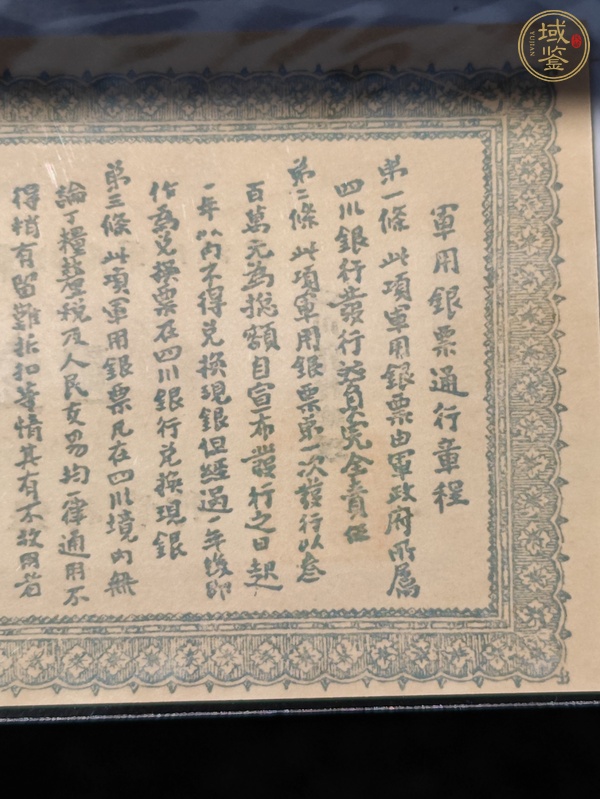 軍用銀票通行章程
第一條 此項軍用銀票由軍政府所屬
四川銀行發行並負完全責任
第二條 此項軍用銀票第一次發行以叁
百萬元為總額自宣布發行之日起
一年以內不得兌換現銀但經過一年後即
作為兌換票在四川銀行兌換現銀
第三條 此項軍用銀票凡在四川境內無
論丁糧釐稅及人民交易均一律通用不
得稍有留難折扣等情其有不收用者
域鉴
YUJIAN